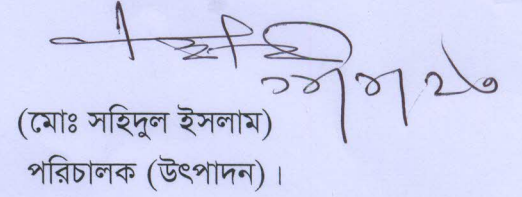 (মোঃ সহিদুল ইসলাম)
পরিচালক (উৎপাদন)।